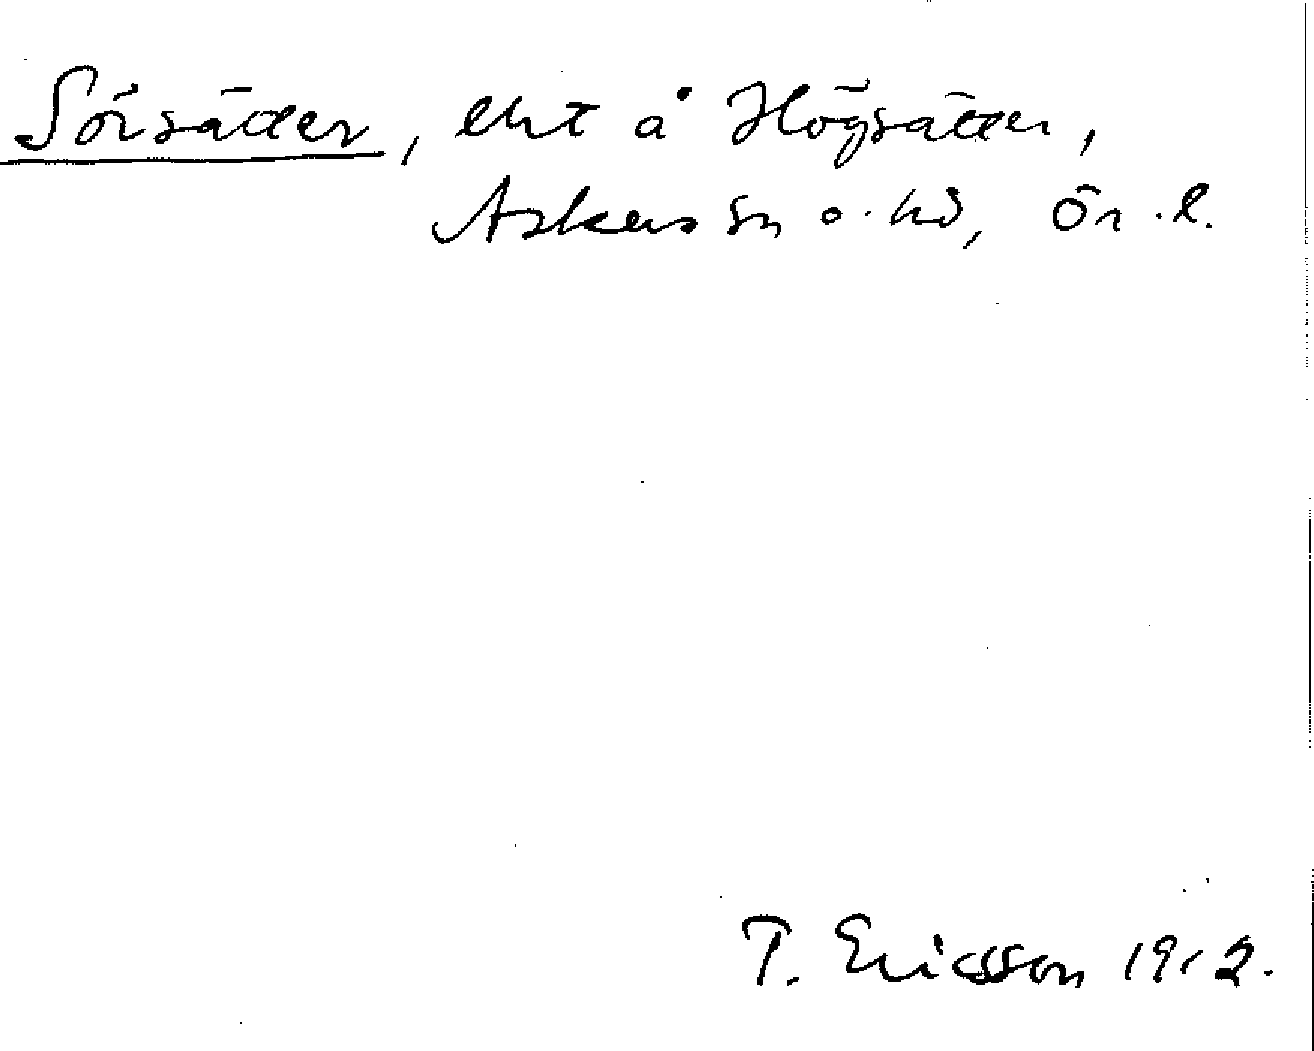 Sörsätter, lht å Högsätter,
Askers sn o. hd, Ör. l.
T. Ericsson 1912.